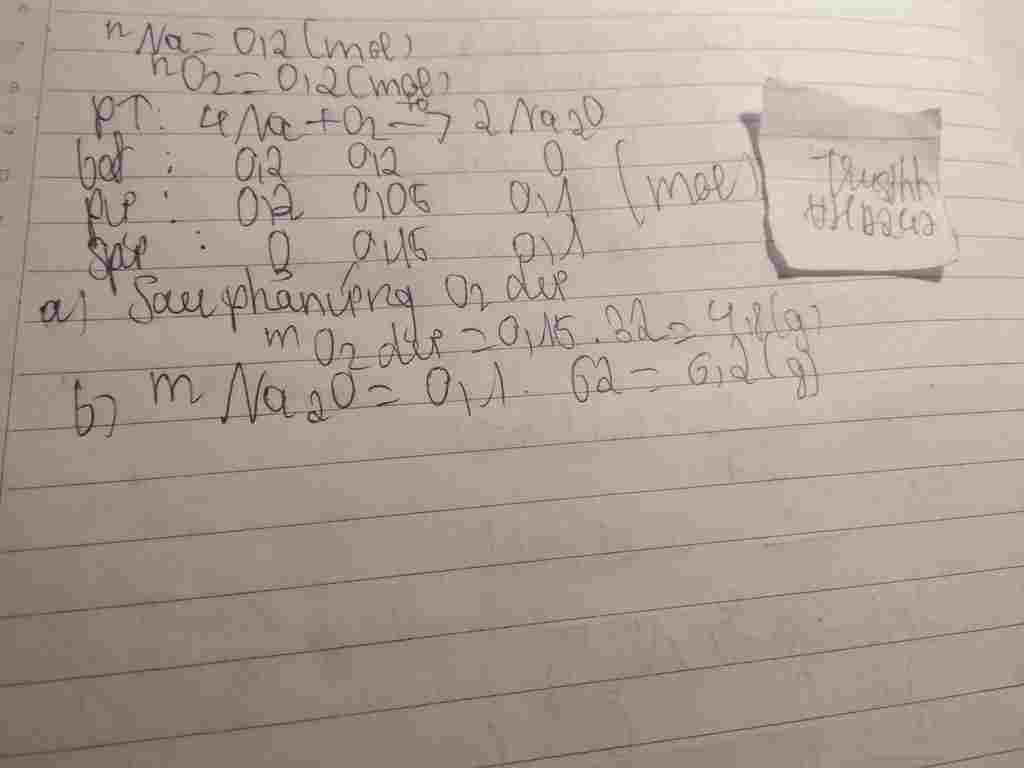 nNa = 0,2 (mol)
nO2 = 0,2 (mol)
PT: 4Na + O2 → 2Na2O
bđ : 0,2 0,2 0
pư : 0,2 0,05 0,1 (mol)
spư : 0 0,15 0,1
a) Sau phản ứng O2 dư
mO2 dư = 0,15 . 32 = 4,8 (g)
b) mNa2O = 0,1 . 62 = 6,2 (g)